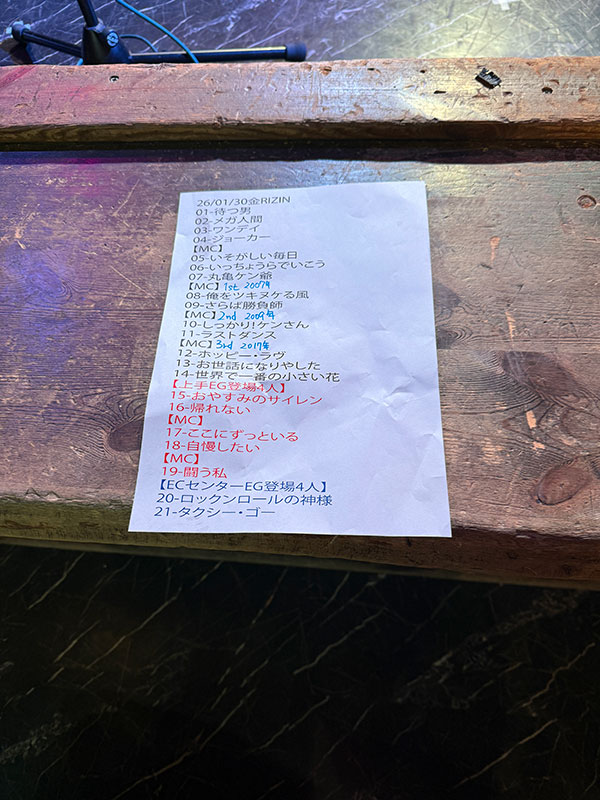 26/01/30金RIZIN
01-待つ男
02-メガ人間
03-ワンデイ
04-ジョーカー
【MC】
05-いそがしい毎日
06-いっちょうらでいこう
07-丸亀ケン爺
【MC】1st 2007年
08-俺をツキヌケる風
09-さらば勝負師
【MC】2nd 2009年
10-しっかり!ケンさん
11-ラストダンス
【MC】3rd 2017年
12-ホッピー・ラヴ
13-お世話になりやした
14-世界で一番の小さい花
【上手EG登場4人】
15-おやすみのサイレン
16-帰れない
【MC】
17-ここにずっといる
18-自慢したい
【MC】
19-闘う私
【ECセンターEG登場4人】
20-ロックンロールの神様
21-タクシー・ゴー